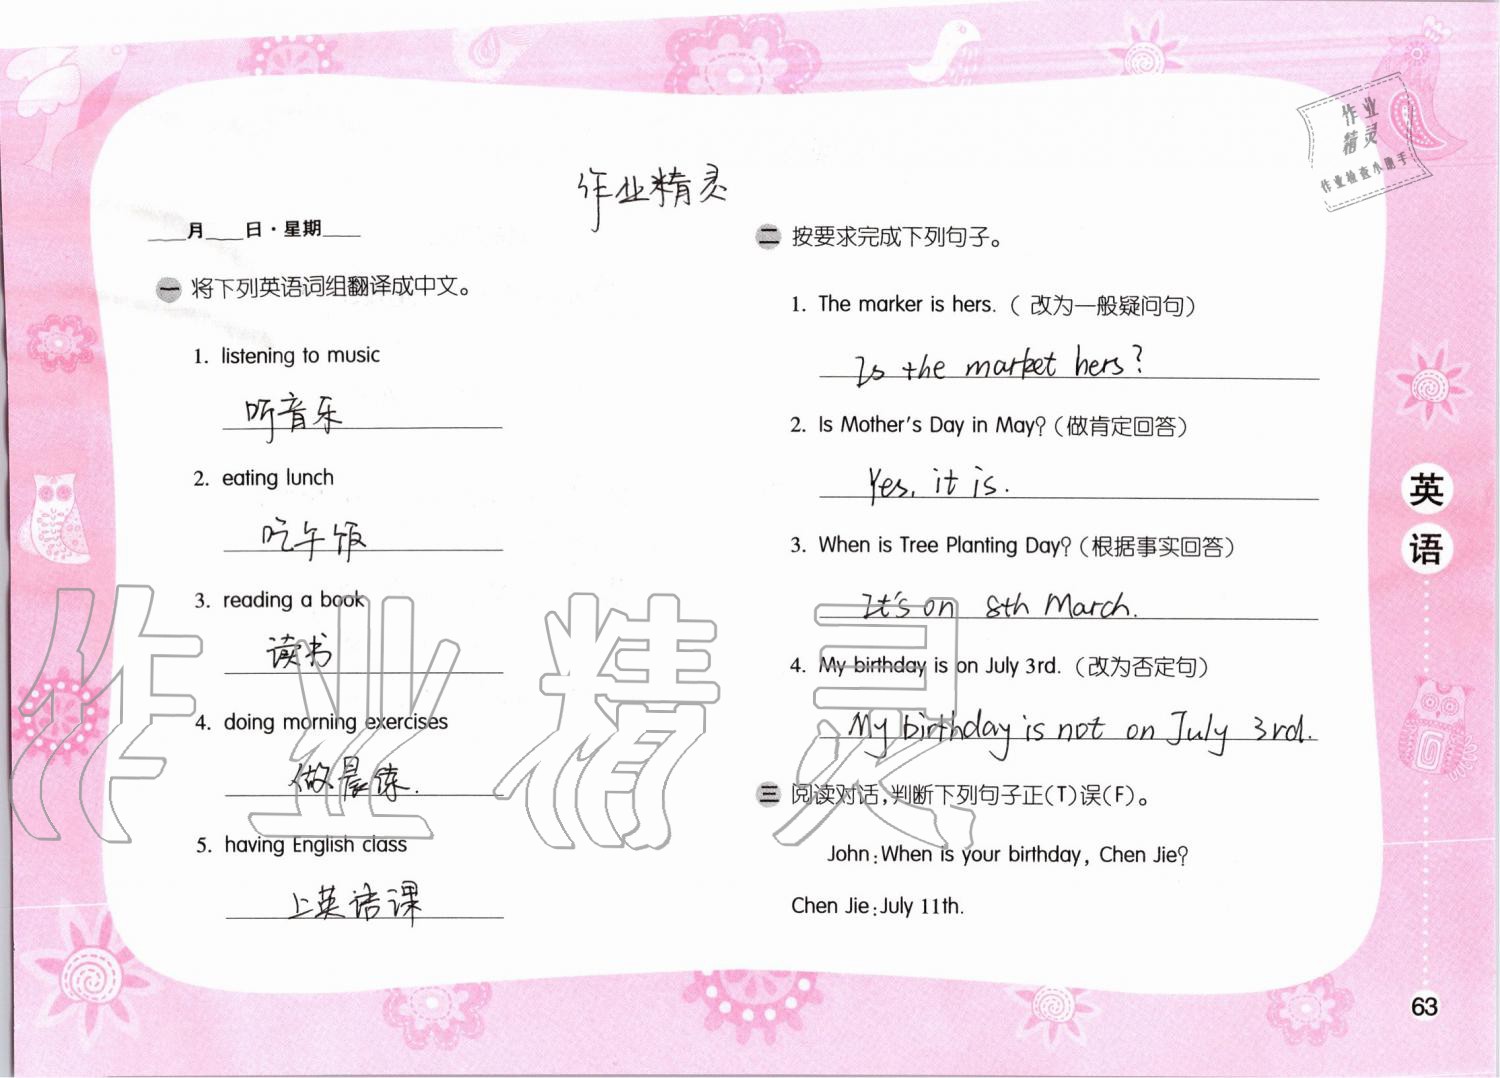 作业精灵
作业
精灵
作业检查小助手
____月____日·星期____
一 将下列英语词组翻译成中文。
1. listening to music
听音乐
2. eating lunch
吃午饭
3. reading a book
读书
4. doing morning exercises
做晨练.
5. having English class
上英语课
二 按要求完成下列句子。
1. The marker is hers.（改为一般疑问句）
Is the market hers?
2. Is Mother's Day in May?（做肯定回答）
Yes, it is.
3. When is Tree Planting Day?（根据事实回答）
It's on 8th March.
4. My birthday is on July 3rd.（改为否定句）
My birthday is not on July 3rd.
三 阅读对话,判断下列句子正(T)误(F)。
John:When is your birthday, Chen Jie?
Chen Jie:July 11th.
作业精灵
英语
63